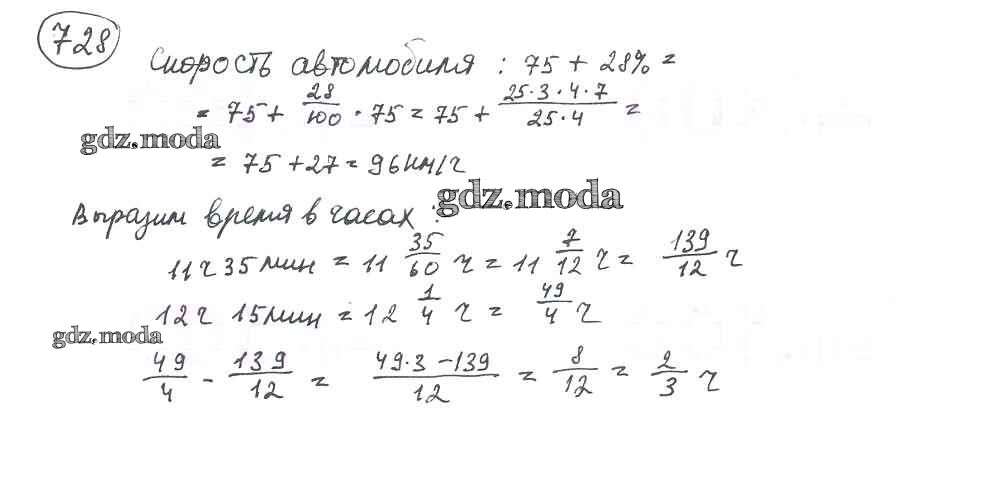 728
Скорость автомобиля : 75 + 28% =
= 75 + 28/100 · 75 = 75 + 25·3·4·7/25·4 =
gdz.moda
= 75 + 27 = 96 км/ч
gdz.moda
Выразим время в часах :
11ч 35 мин = 11 35/60 ч = 11 7/12 ч = 139/12 ч
12ч 15мин = 12 1/4 ч = 49/4 ч
gdz.moda
49/4 - 139/12 = 49·3 - 139/12 = 8/12 = 2/3 ч